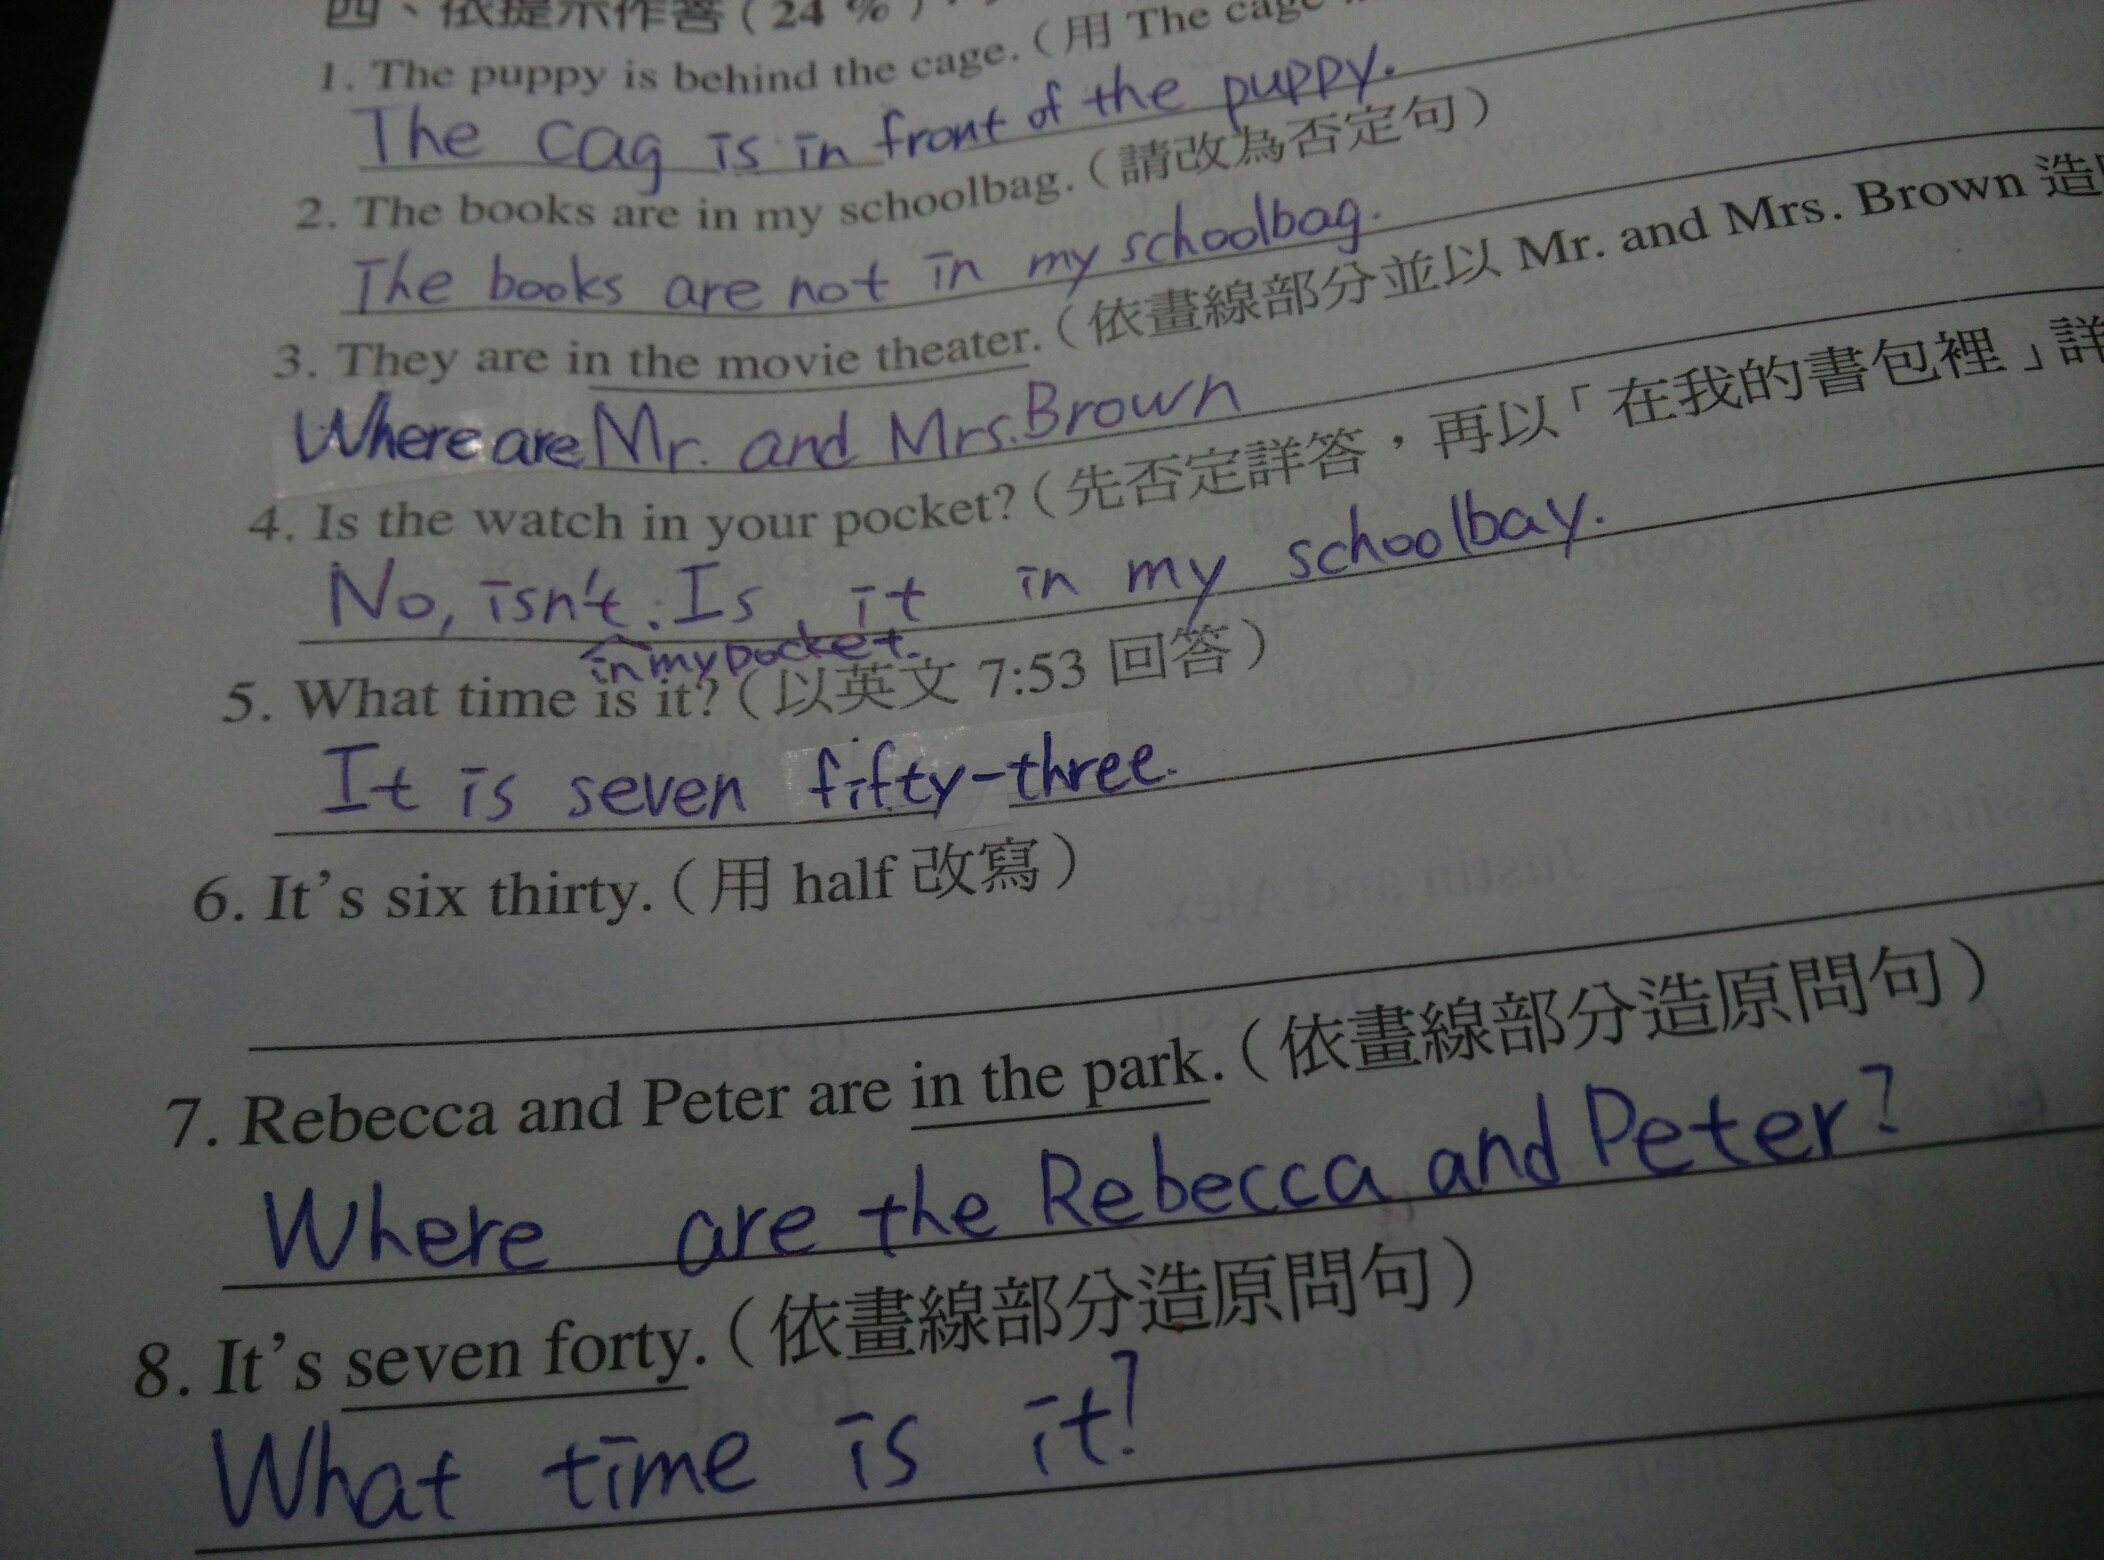 四、依提示作答(24 %)
1. The puppy is behind the cage.(用 The cage
The cag is in front of the puppy.
2. The books are in my schoolbag.(請改為否定句)
The books are not in my schoolbag.
3. They are in the movie theater.(依畫線部分並以 Mr. and Mrs. Brown 造
Where are Mr. and Mrs. Brown
4. Is the watch in your pocket?(先否定詳答,再以「在我的書包裡」詳
No, isn't. Is it in my schoolbay.
in my pocket.
5. What time is it?(以英文 7:53 回答)
It is seven fifty-three.
6. It's six thirty.(用 half 改寫)
7. Rebecca and Peter are in the park.(依畫線部分造原問句)
Where are the Rebecca and Peter?
8. It's seven forty.(依畫線部分造原問句)
What time is it?